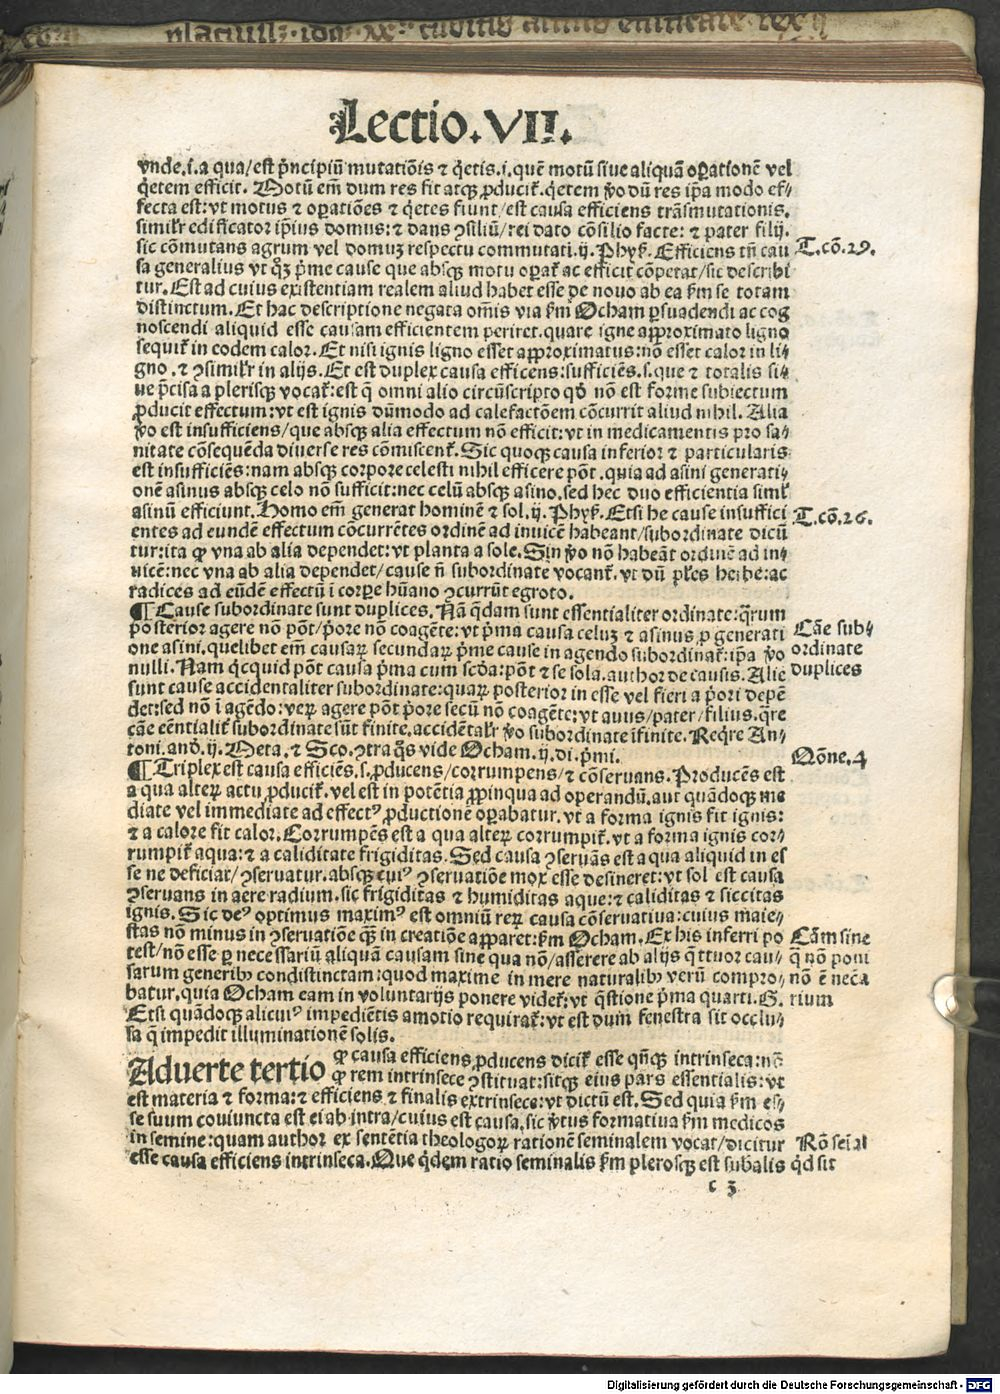 Lectio.VII.
vnde.i.a qua/est pͥncipiū mutatiōis ⁊ q̇etis.i.quē motū siue aliquā oꝑationē vel
q̇etem efficit. Motū em̄ dum res fit atqꝫ ꝓducit᷑. q̇etem v̊o dū res ip̄a modo ef⸗
fecta est: vt motus ⁊ oꝑatiōes ⁊ q̇etes fiunt/est causa efficiens trāsmutationis.
simil᷑r edificator ip̄ius domus: ⁊ dans ꝯsiliū/rei dato cōsilio facte: ⁊ pater filij.
sic cōmutans agrum vel domuꝫ respectu commutati.ij. Phyẜ. Efficiens tn̄ cau
T.cō.29.
sa generalius vt qꝫ pͥme cause que absqꝫ motu oꝑat᷑ ac efficit cōpetat/sic describi
tur. Est ad cuius existentiam realem aliud habet esse de nouo ab ea ẜm se totam
distinctum. Et hac descriptione negata om̄is via ẜm Ocham ꝑsuadendi ac cog
noscendi aliquid esse causam efficientem periret. quare igne approximato ligno
sequit᷑ in eodem calor. Et nisi ignis ligno esset approximatus: nō esset calor in li⸗
gno. ⁊ ꝯsimil᷑r in alijs. Et est duplex causa efficens: sufficiēs.s. que ⁊ totalis si⸗
ue p̄cisa a plerisqꝫ vocat᷑: est q̄ omni alio circūscripto qd̓ nō est forme subiectum
ꝓducit effectum: vt est ignis dūmodo ad calefactōem cōcurrit aliud nihil. Alia
v̊o est insufficiens/que absqꝫ alia effectum nō efficit: vt in medicamentis pro sa⸗
nitate cōsequēda diuerse res cōmiscent᷑. Sic quoqꝫ causa inferior ⁊ particularis
est insufficiēs: nam absqꝫ corpore celesti nihil efficere pōt. quia ad asini generati⸗
onē asinus absqꝫ celo nō sufficit: nec celū absqꝫ asino. sed hec duo efficientia siml̓
asinū efficiunt. Homo em̄ generat hominē ⁊ sol.ij. Phyẜ. Etsi he cause insuffici
T.cō.26.
entes ad eundē effectum cōcurrētes ordinē ad inuicē habeant/subordinate dicū
tur: ita ꝙ vna ab alia dependet: vt planta a sole. Sin v̊o nō habeāt ordinē ad in⸗
uicē: nec vna ab alia dependet/cause n̄ subordinate vocant᷑. vt dū pl̓es herbe: ac
radices ad eūdē effectū ī corꝑe hūano ꝯcurrūt egroto.
¶ Cause subordinate sunt duplices. Nā q̄dam sunt essentialiter ordinate: qͣrum
posterior agere nō pōt/pͥore nō coagēte: vt pͥma causa celuꝫ ⁊ asinus ꝓ generati
Cāe sub⸗
one asini. quelibet em̄ causaꝝ secundaꝝ pͥme cause in agendo subordinat᷑: ip̄a v̊o
ordinate
nulli. Nam qͥcquid pōt causa pͥma cum scd̓a: pōt ⁊ se sola. author de causis. Alie
duplices
sunt cause accidentaliter subordinate: quaꝝ posterior in esse vel fieri a pͥori depē
det: sed nō ī agēdo: veꝝ agere pōt pͥore secū nō coagēte: vt auus/pater/filius. qͣre
cāe eēntialit᷑ subordinate sūt finite. accidētal᷑r v̊o subordinate īfinite. Reqͥre An⸗
toni. and̓.ij. Meta. ⁊ Sco. ꝯtra qͦs vide Ocham.ij. di. pͥmi.
Qōne.4
¶ Triplex est causa efficiēs.s. ꝓducens/corrumpens/⁊ cōseruans. Producēs est
a qua alteꝝ actu ꝓducit᷑. vel est in potētia ꝓpinqua ad operandū. aut quādoqꝫ me
diate vel immediate ad effectꝰ ꝓductionē oꝑabatur. vt a forma ignis fit ignis:
⁊ a calore fit calor. Corrumpēs est a qua alteꝝ corrumpit᷑. vt a forma ignis cor⸗
rumpit᷑ aqua: ⁊ a caliditate frigiditas. Sed causa ꝯseruās est a qua aliquid in es
se ne deficiat/ꝯseruatur. absqꝫ cuiꝰ ꝯseruatiōe mox esse desineret: vt sol est causa
ꝯseruans in aere radium. sic frigiditas ⁊ humiditas aque: ⁊ caliditas ⁊ siccitas
ignis. Sic deꝰ optimus maximꝰ est omniū reꝝ causa cōseruatiua: cuius maie⸗
stas nō minus in ꝯseruatiōe qꝫ̄ in creatiōe apparet: ẜm Ocham. Ex his inferri po
Cām sine
test/nō esse ꝑ necessariū aliquā causam sine qua nō/asserere ab alijs q̄ttuor cau⸗
q̄ nō poni
sarum generibꝫ condistinctam: quod maxime in mere naturalibꝫ verū compro⸗
nō ē necā
batur. quia Ocham eam in voluntarijs ponere videt᷑: vt q̄stione pͥma quarti. G.
rium
Etsi quādoqꝫ alicuiꝰ impediētis amotio requirat᷑: vt est dum fenestra sit occlu⸗
sa q̄ impedit illuminationē solis.
Aduerte tertio ꝙ causa efficiens ꝓducens dicit᷑ esse qn̄qꝫ intrinseca: nō
ꝙ rem intrinsece ꝯstituat: sitqꝫ eius pars essentialis: vt
est materia ⁊ forma: ⁊ efficiens ⁊ finalis extrinsece: vt dictū est. Sed quia ẜm es⸗
se suum coniuncta est ei ab intra/cuius est causa. sic v̓tus formatiua ẜm medicos
in semine: quam author ex sentētia theologoꝝ rationē seminalem vocat/dicitur
Rō sei al
esse causa efficiens intrinseca. Que qͥdem ratio seminalis ẜm plerosqꝫ est sub̄alis qͥd sit
c 3
Digitalisierung gefördert durch die Deutsche Forschungsgemeinschaft - DFG